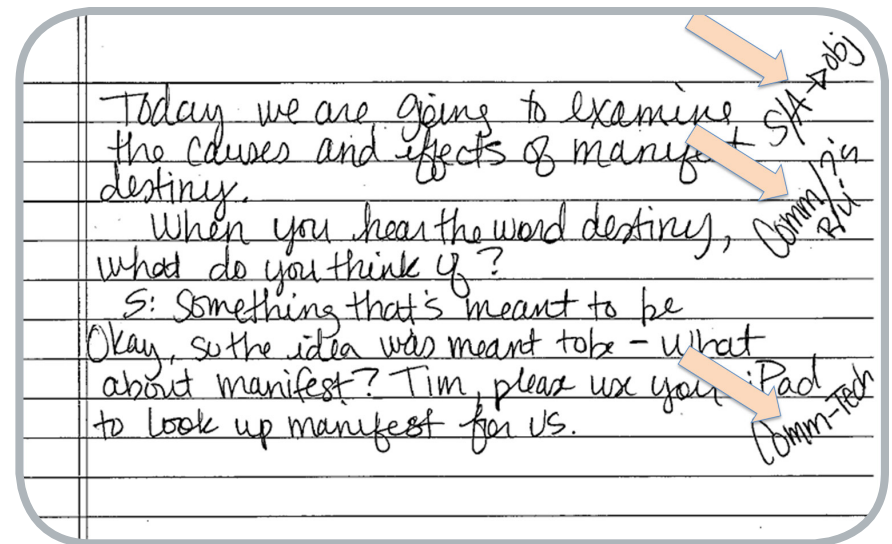 Today we are going to examine
the causes and effects of manifest
destiny.
When you hear the word destiny,
what do you think of?
S: Something that's meant to be
Okay, so the idea was meant to be – what
about manifest? Tim, please use your iPad
to look up manifest for us.
S/A → obj
Comm/?'s
Comm-Tech